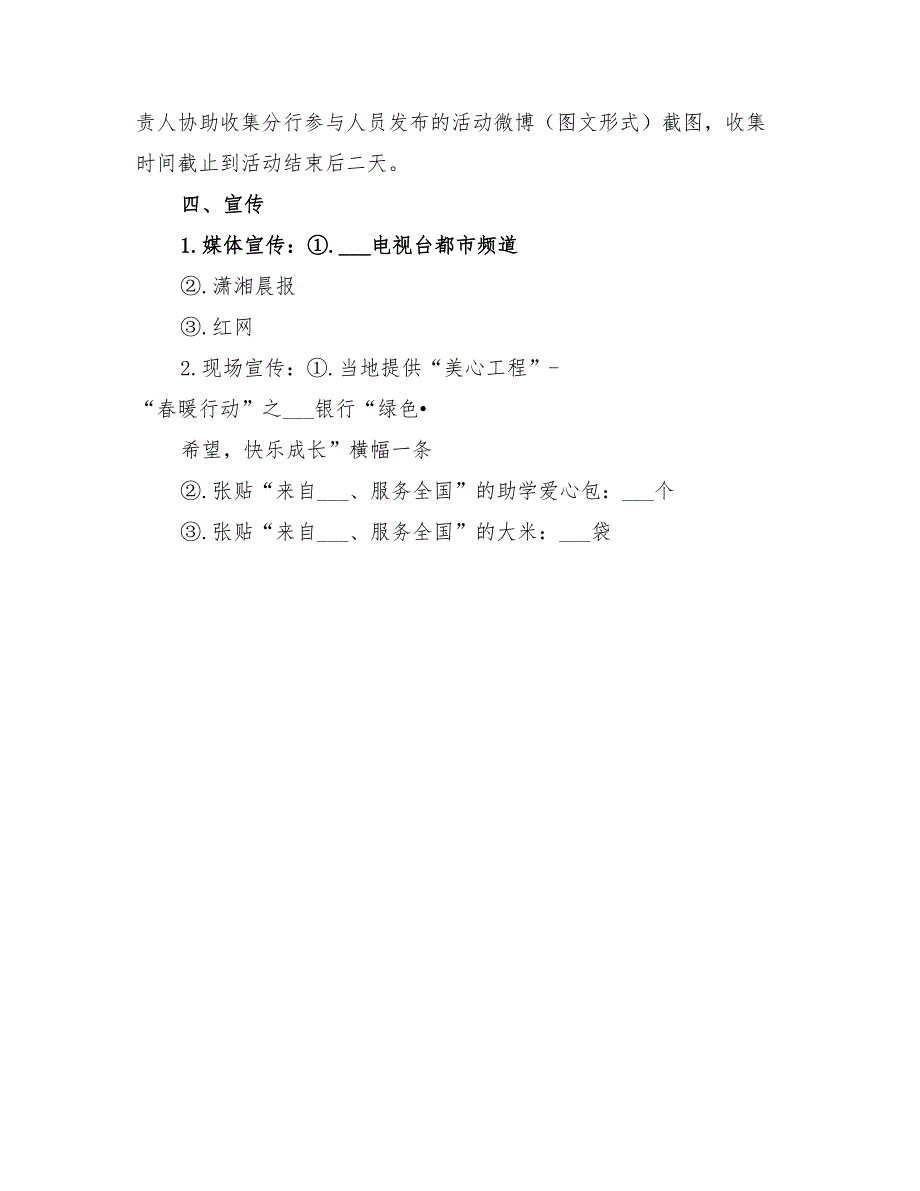 责人协助收集分行参与人员发布的活动微博（图文形式）截图，收集
时间截止到活动结束后二天。
四、宣传
1.媒体宣传：①.___电视台都市频道
②.潇湘晨报
③.红网
2.现场宣传：①.当地提供“美心工程”-
“春暖行动”之___银行“绿色•
希望，快乐成长”横幅一条
②.张贴“来自___、服务全国”的助学爱心包：___个
③.张贴“来自___、服务全国”的大米：___袋